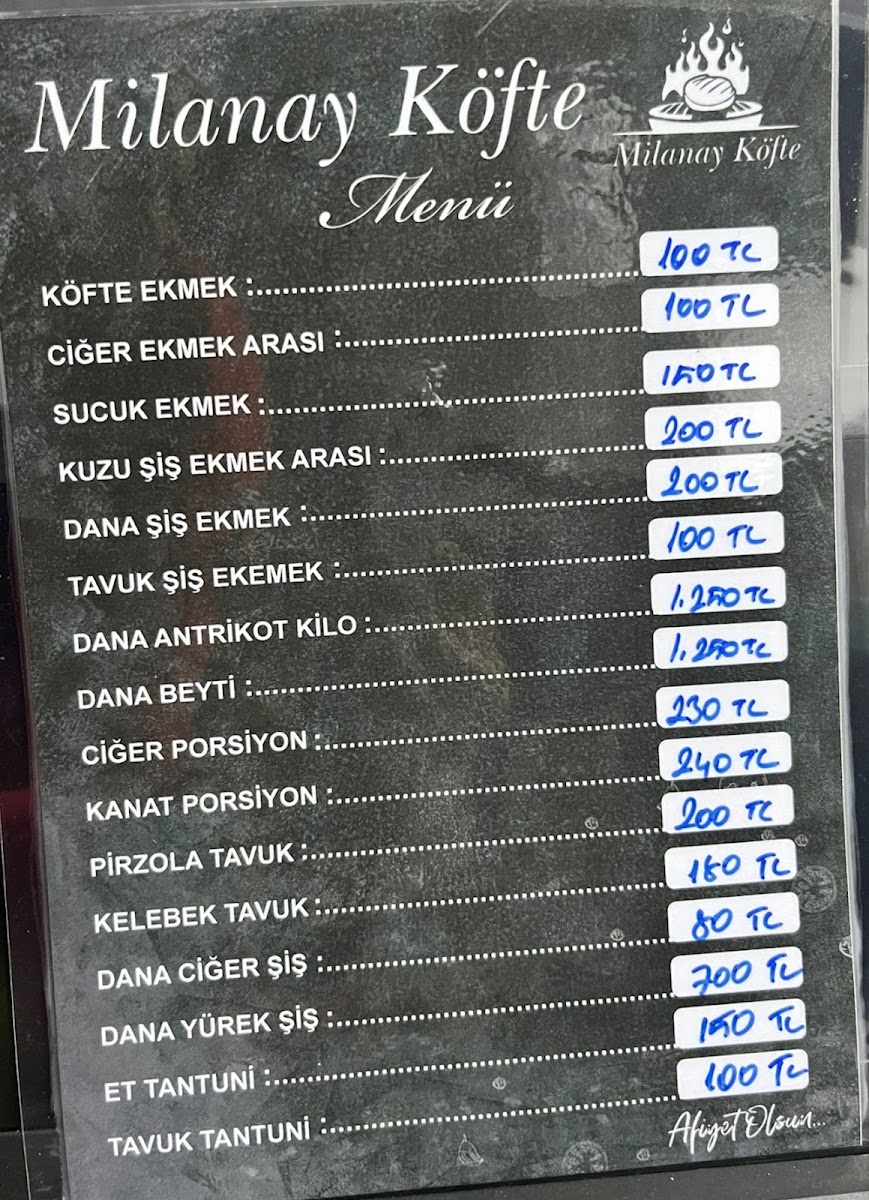 Milanay Köfte
Milanay Köfte
Menü
KÖFTE EKMEK :.......... 100 TL
CİĞER EKMEK ARASI :.......... 100 TL
SUCUK EKMEK :.......... 150 TL
KUZU ŞİŞ EKMEK ARASI :.......... 200 TL
DANA ŞİŞ EKMEK :.......... 200 TL
TAVUK ŞİŞ EKEMEK :.......... 100 TL
DANA ANTRİKOT KİLO :.......... 1.250 TL
DANA BEYTİ :.......... 1.250 TL
CİĞER PORSİYON :.......... 230 TL
KANAT PORSİYON :.......... 240 TL
PİRZOLA TAVUK :.......... 200 TL
KELEBEK TAVUK :.......... 180 TL
DANA CİĞER ŞİŞ :.......... 80 TL
DANA YÜREK ŞİŞ :.......... 700 TL
ET TANTUNİ :.......... 150 TL
TAVUK TANTUNİ :.......... 100 TL
Afiyet Olsun...